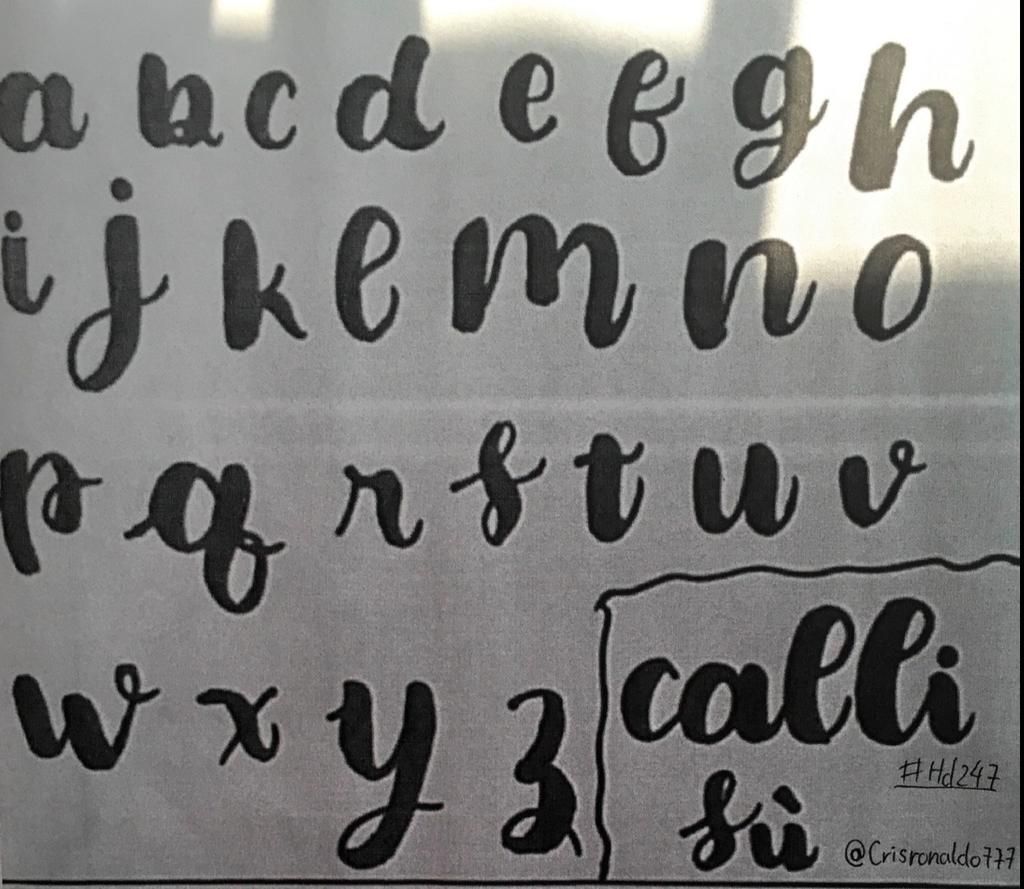 a b c d e f g h
i j k l m n o
p q r s t u v
w x y z
calli
#Hd247
sù
@Crisronaldo777